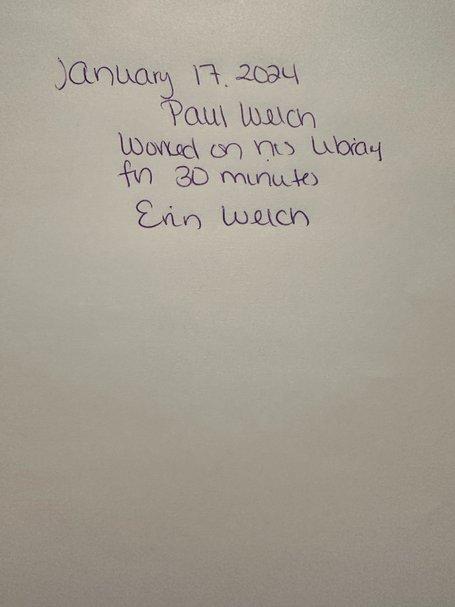 January 17. 2024
Paul Welch
Worked on his library
for 30 minutes
Erin Welch